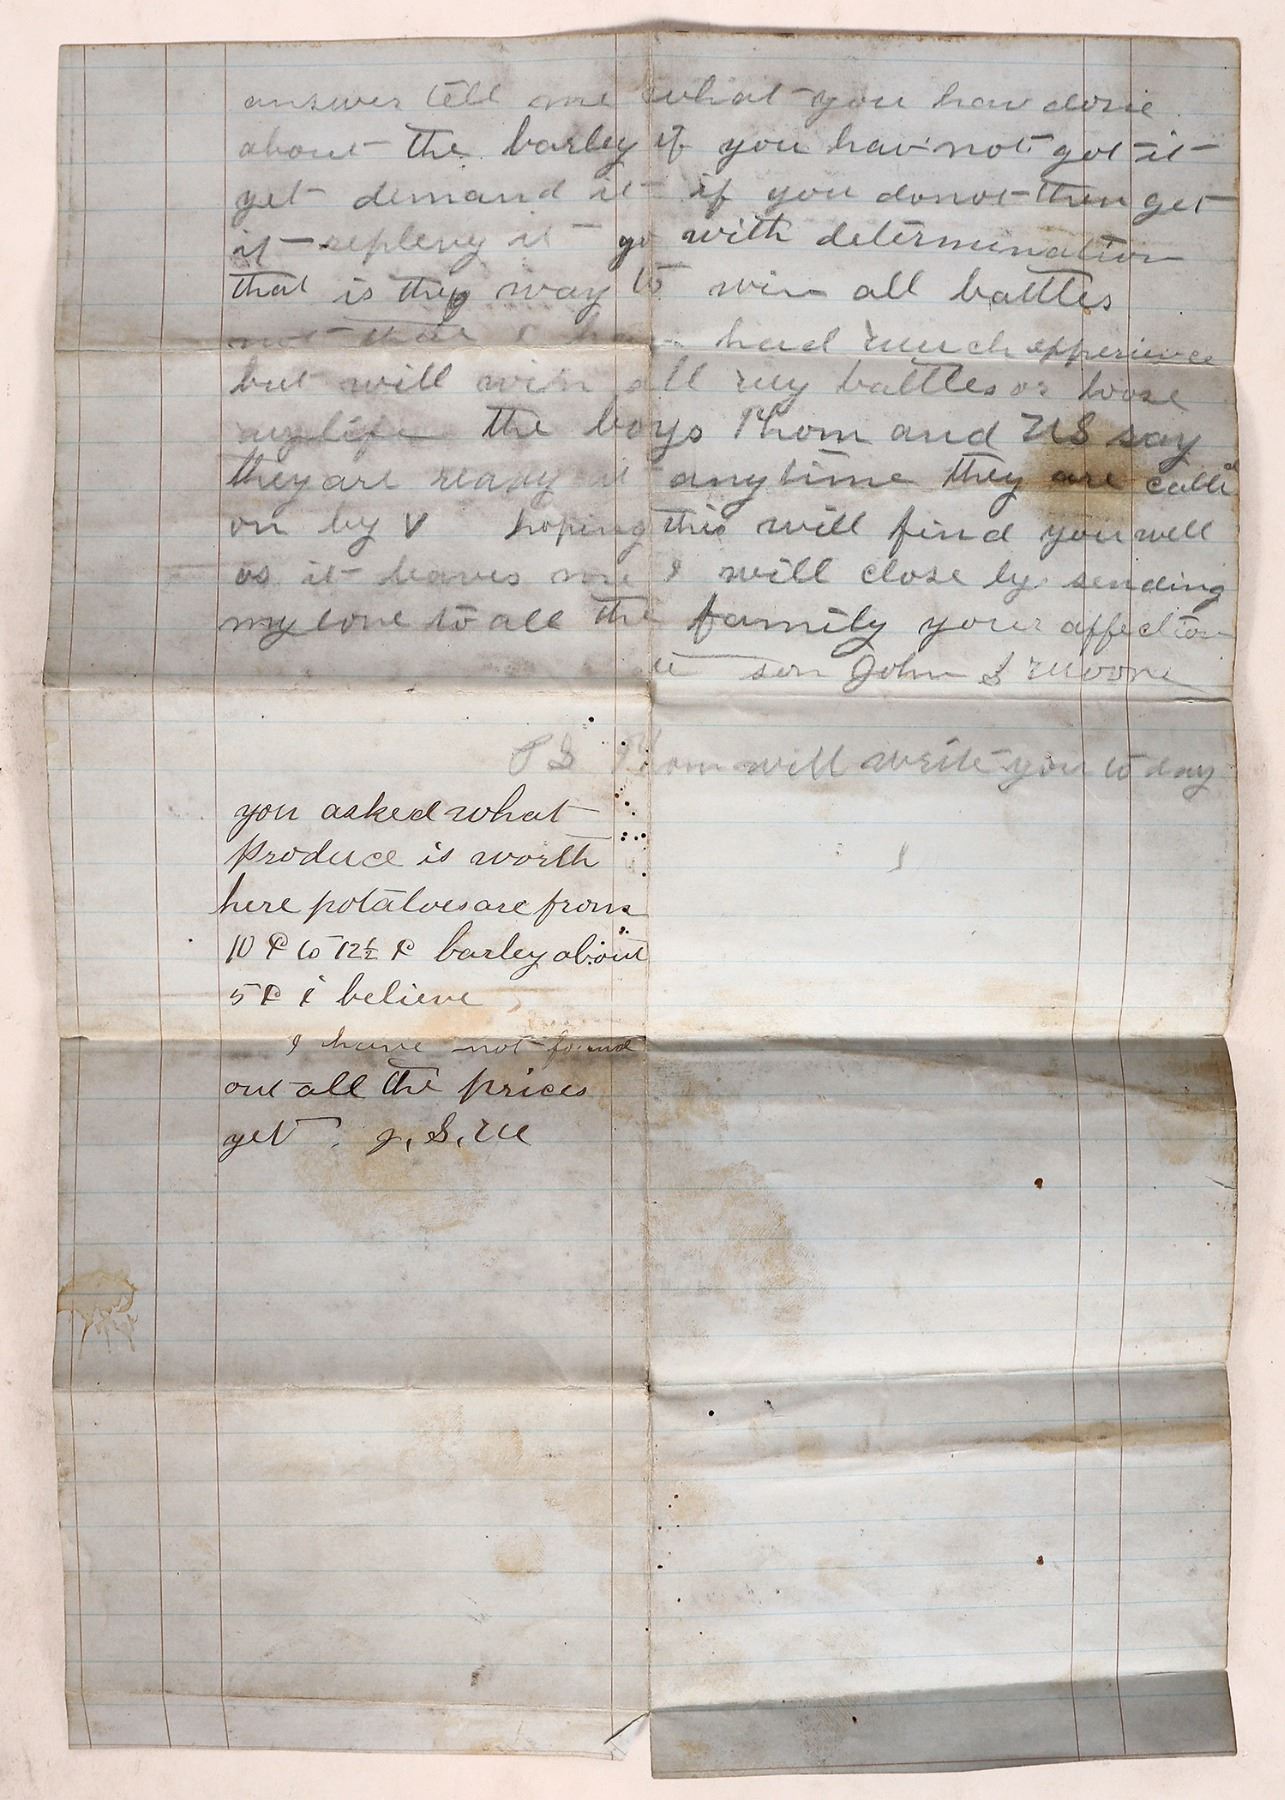 answer tell me what you hav done
about the barley if you hav not got it
yet demand it if you do not then get
it replevy it go with determination
that is the way to win all battles
not that I hav had much experience
but will win all my battles or loose
my life the boys Thom and US say
they are ready at any time they are calld
on by V hoping this will find you well
as it leaves me I will close by sending
my love to all the family your affection
ate son John S Moore
P S Thom will write you to day
you asked what
produce is worth
here potatoes are from
10 ¢ to 12½ ¢ barley about
5 ¢ i believe
I have not found
out all the prices
yet. J. S. M